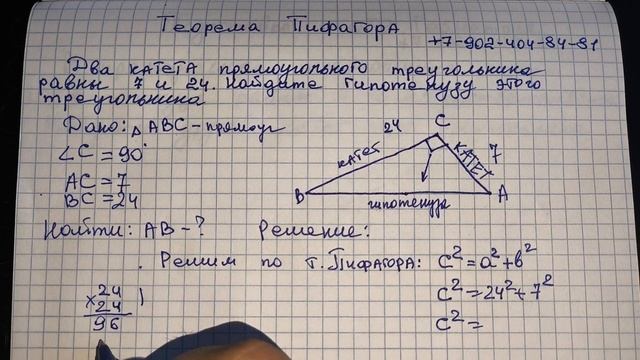 Теорема Пифагора
+7-902-404-84-81
Два катета прямоугольного треугольника
равны 7 и 24. Найдите гипотенузу этого
треугольника
Дано: △ ABC - прямоуг
∠C = 90°
AC = 7
BC = 24
24
C
катет
КАТЕТ
7
B
A
гипотенуза
Найти: AB - ?
Решение:
Решим по т. Пифагора: c² = a² + b²
c² = 24² + 7²
c² =
24
× 24
96